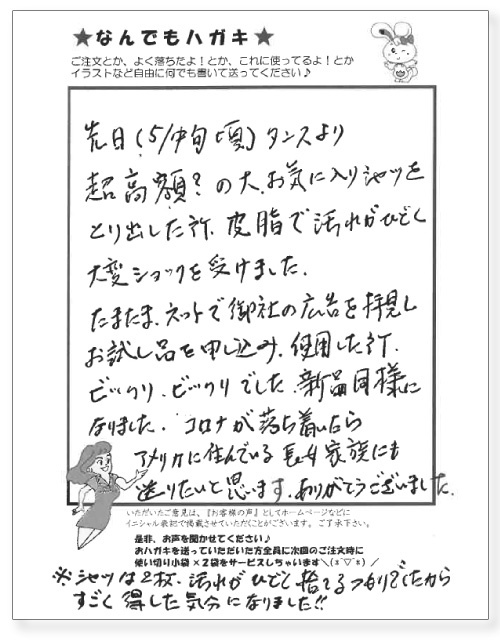 ★なんでもハガキ★
ご注文とか、よく落ちたよ！とか、これに使ってるよ！とか
イラストなど自由に何でも書いて送ってください♪
先日(5/中旬頃)タンスより
超高額？の大、お気に入りシャツを
とり出した所、皮脂で汚れがひどく
大変ショックを受けました。
たまたま、ネットで御社の広告を拝見し
お試し品を申し込み、使用した所、
ビックリ、ビックリでした。新品同様に
なりました。コロナが落ち着いたら
アメリカに住んでいる長女家族にも
送りたいと思います。ありがとうございました。
いただいたご意見は、『お客様の声』としてホームページなどに
イニシャル表記で掲載させていただくことがございます。ご了承下さい。
是非、お声を聞かせてください♪
おハガキを送っていただいた方全員に次回のご注文時に
使い切り小袋×2袋をサービスしちゃいます＼(≧▽≦)／
※シャツは2枚、汚れがひどく捨てるつもりでしたから
すごく得した気分になりました!!